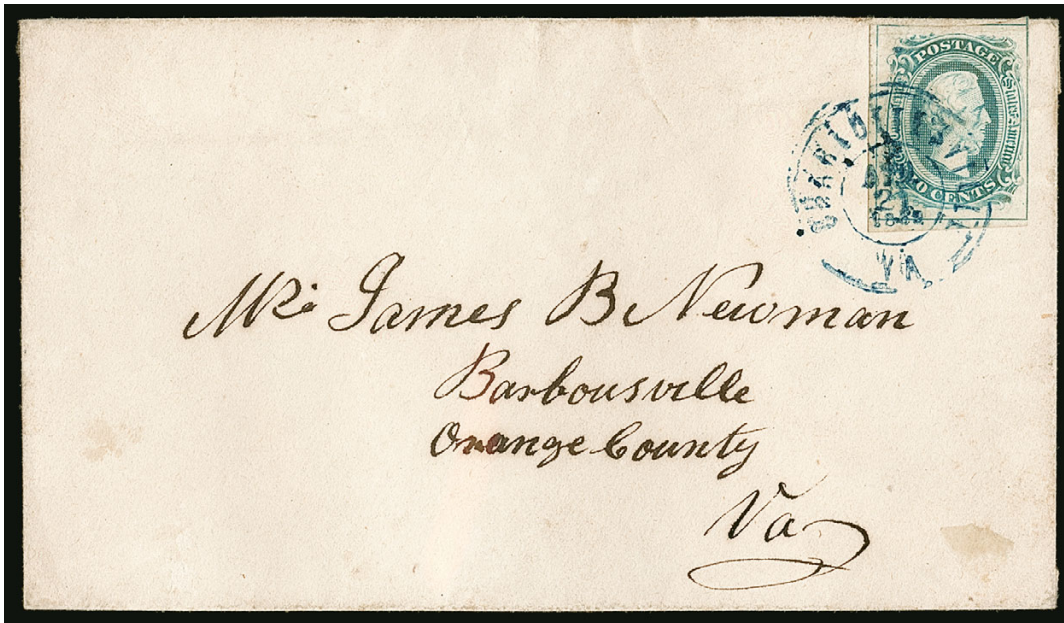 POSTAGE
CENTS
VA
Mr. James B Newman
Barbousville
Orange County
Va